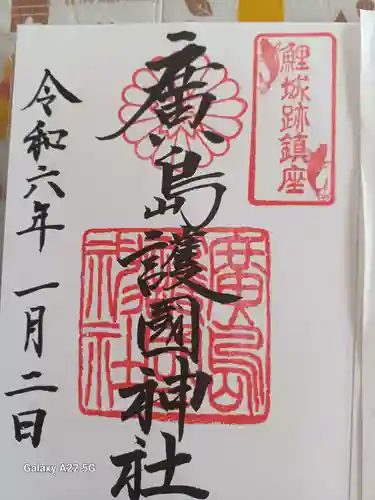 鯉城跡鎮座
廣島護國神社
廣島護國神社
令和六年一月二日
Galaxy A22 5G